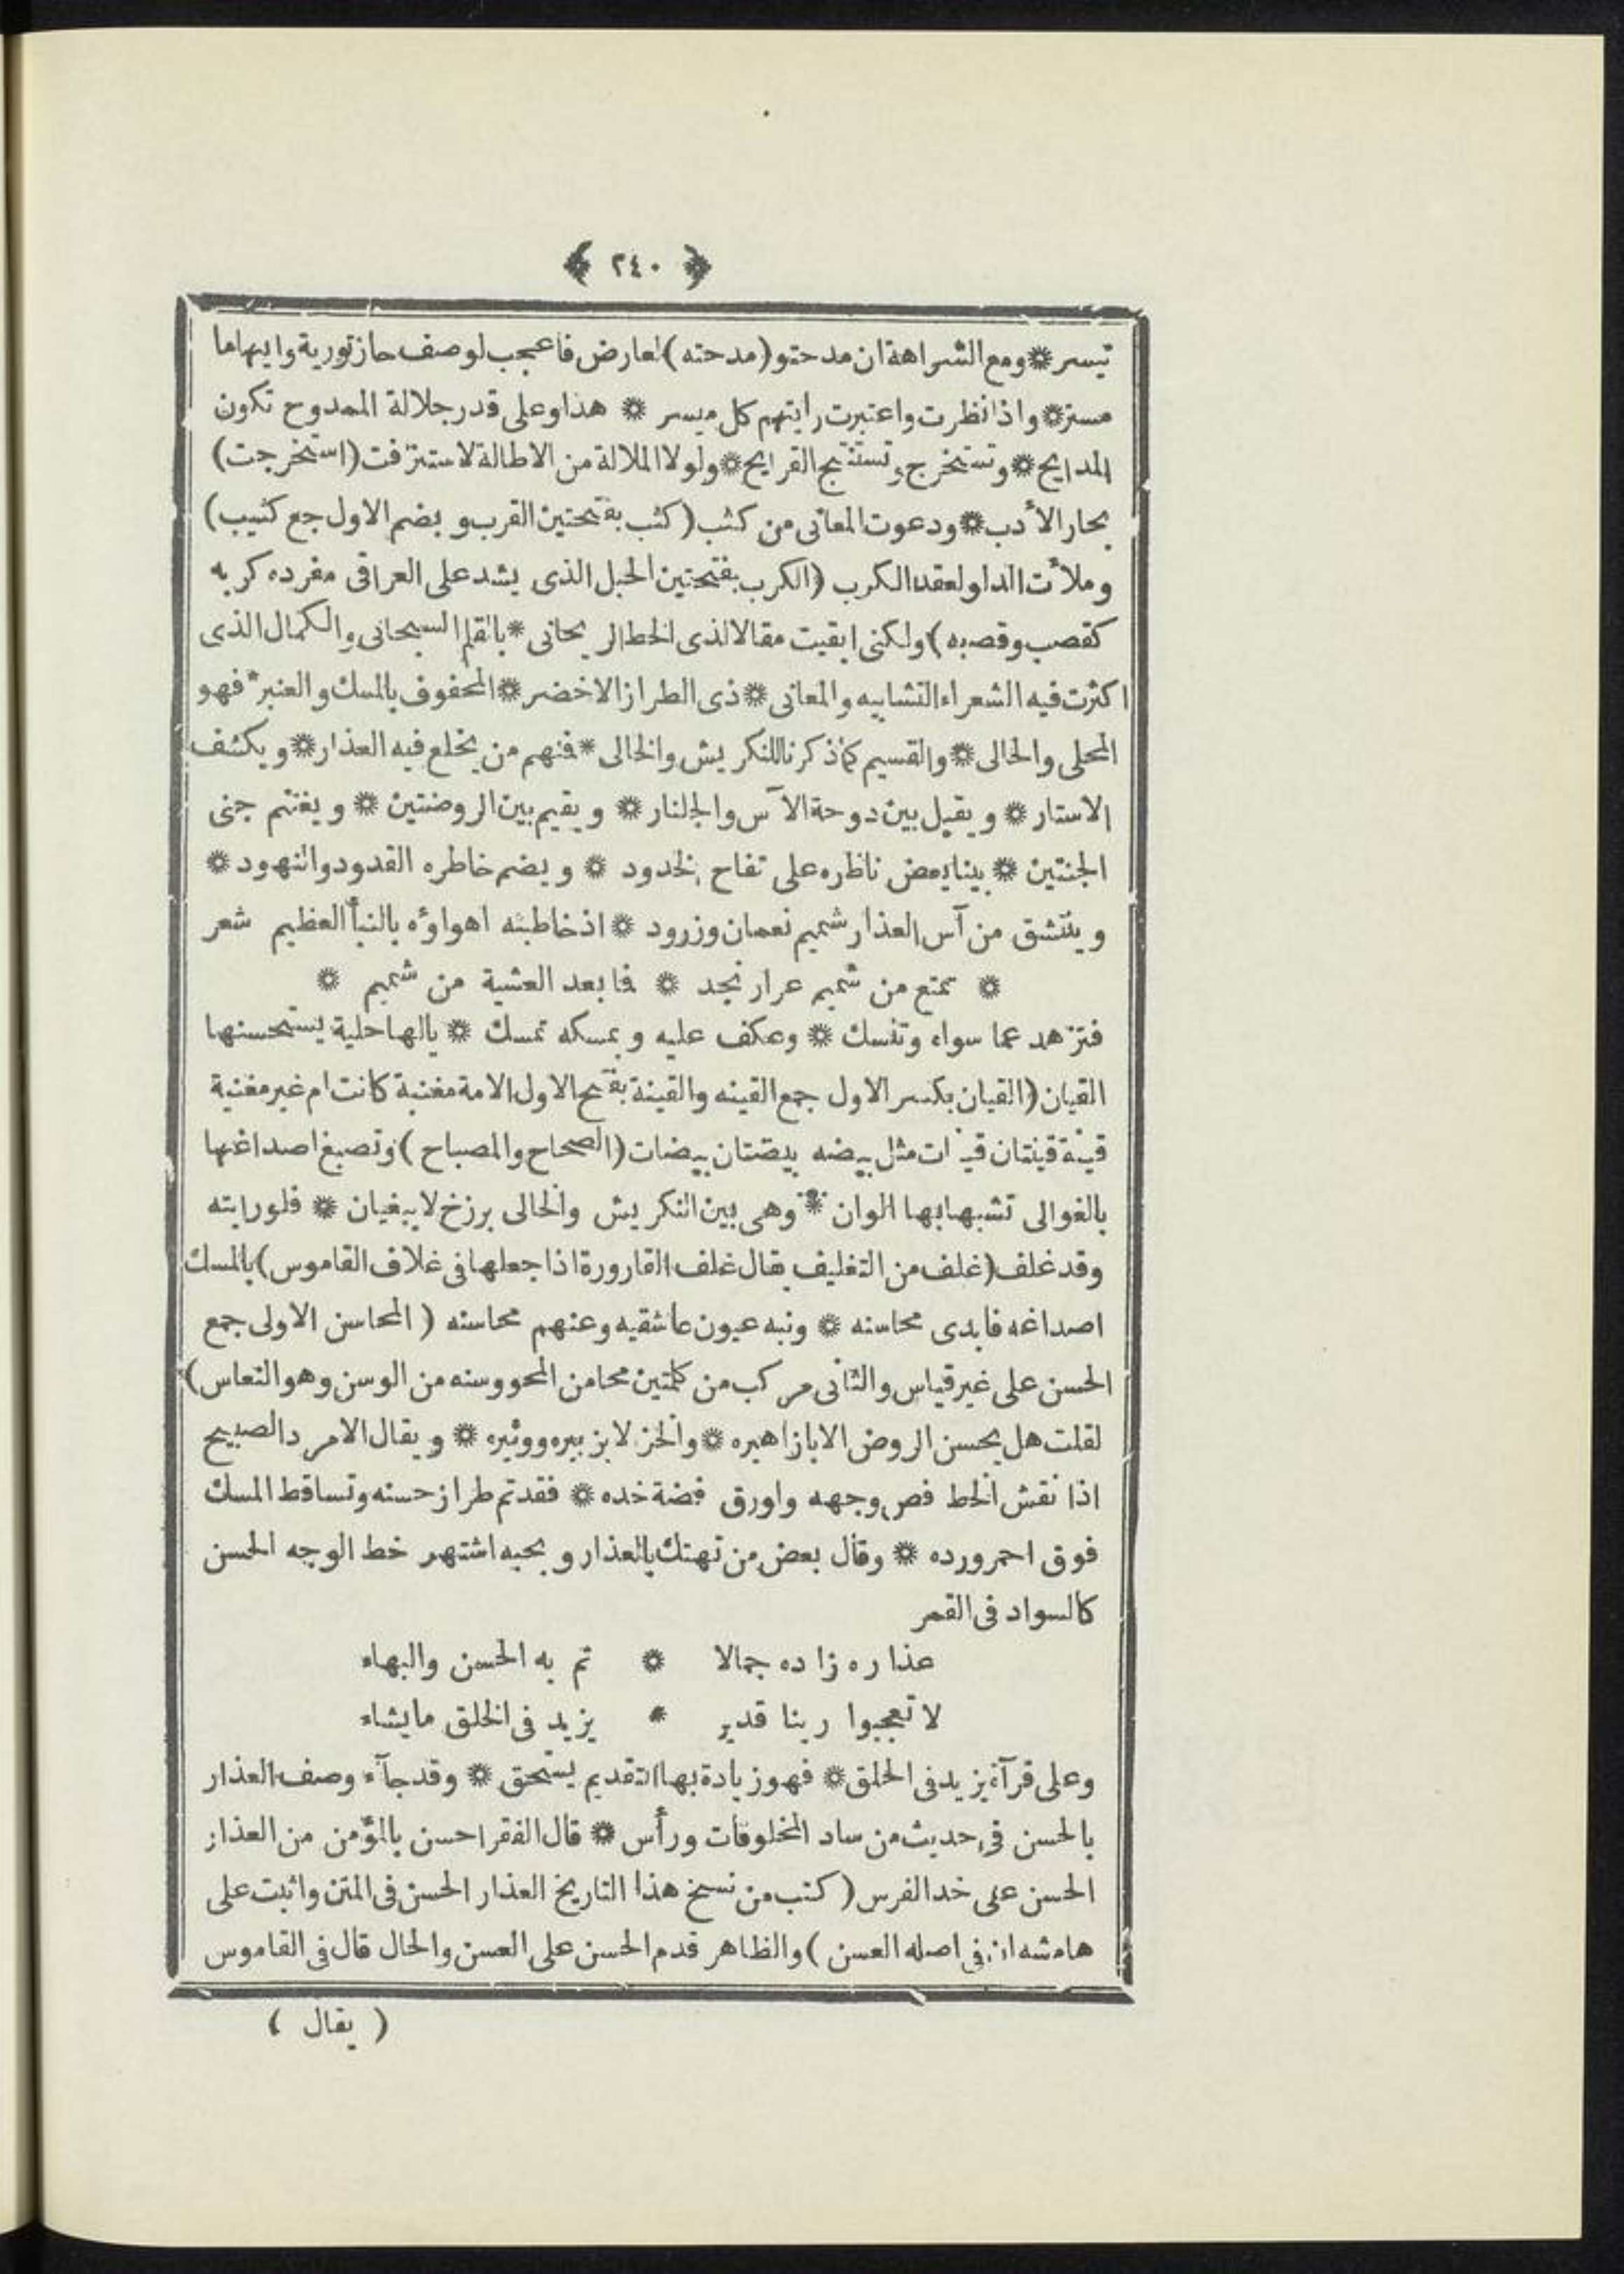 ﴿ ٢٤٠ ﴾
تيسر * ومع الشراهة ان مدحتو (مدحته) لعارض فاعجب لوصف حاز تورية وايهاما
مستر * واذا نظرت واعتبرت رايتهم كل ميسر * هذا وعلى قدر جلالة الممدوح تكون
المدايح * وتستخرج وتستنتج القرايح * ولولا الملالة من الاطالة لاستنزفت (استخرجت)
بحار الأدب * ودعوت المعانى من كثب (كثب بفتحتين القرب وبضم الاول جع كثيب)
وملأت الداو لعقد الكرب (الكرب بفتحتين الحبل الذى يشد على العراقى مفرده كربه
كقصب وقصبه) ولكنى ابقيت مقالا لذى الخط الريحانى * بالقلم السبحانى والكمال الذى
اكثرت فيه الشعراء التشابيه والمعانى * ذى الطراز الاخضر * المحفوف بالمسك والعنبر * فهو
المحلى والحالى * والقسيم كما ذكرنا للنكريش والخالى * فنهم من يخلع فيه العذار * ويكشف
الاستار * ويقيل بين دوحة الآس والجلنار * ويقيم بين الروضتين * ويغتنم جنى
الجنتين * بينا يعض ناظره على تفاح الخدود * ويضم خاطره القدود والنهود *
ويتنشق من آس العذار شميم نعمان وزرود * اذ خاطبته اهواؤه بالنبأ العظيم شعر
* تمتع من شميم عرار نجد * فا بعد العشية من شميم *
فتزهد عما سواه وتنسك * وعكف عليه وبمسكه تمسك * يالها حلية يستحسنها
القيان (القيان بكسر الاول جمع القينه والقينة بفتح الاول الامة مغنية كانت ام غير مغنية
قينة قينتان قينات مثل بيضه بيضتان بيضات (الصحاح والمصباح) وتصبغ اصداغها
بالغوالى تشبها بها الوان * وهى بين النكريش والخالى برزخ لا يبغيان * فلو رايته
وقد غلف (غلف من التغليف يقال غلف القارورة اذا جعلها فى غلاف القاموس) بالمسك
اصداغه فابدى محاسنه * ونبه عيون عاشقيه وعنهم محاسنه (المحاسن الاولى جمع
الحسن على غير قياس والثانى مركب من كلمتين محا من المحو وسنه من الوسن وهو النعاس)
لقلت هل يحسن الروض الا بازاهيره * والخز لا بزبيره ووثيره * ويقال الامرد الصبيح
اذا نقش الخط فص وجهه واورق فضة خده * فقد تم طراز حسنه وتساقط المسك
فوق احمر ورده * وقال بعض من تهتك بالعذار وبحبه اشتهر خط الوجه الحسن
كالسواد فى القمر
عذاره زاده جمالا * تم به الحسن والبهاء
لا تعجبوا ربنا قدير * يزيد فى الخلق مايشاء
وعلى قرآة يزيد فى الحلق * فهو زيادة بها التقديم يستحق * وقد جآء وصف العذار
بالحسن فى حديث من ساد المخلوقات ورأس * قال الفقر احسن بالمؤمن من العذار
الحسن على خد الفرس (كتب من نسخ هذا التاريخ العذار الحسن فى المتن واثبت على
هامشه ان فى اصله العسن) والظاهر قدم الحسن على العسن والحال قال فى القاموس
(يقال)